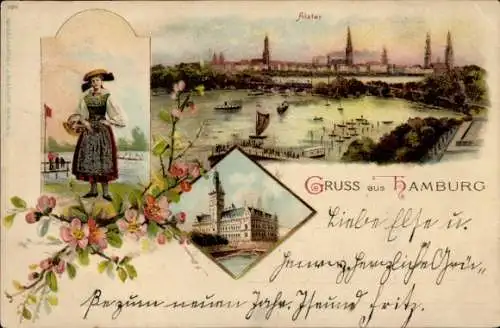 Alster
GRUSS aus HAMBURG
Liebe Else u.
Henry, herzliche Grü-
ße zum neuen Jahr.
Fritz.